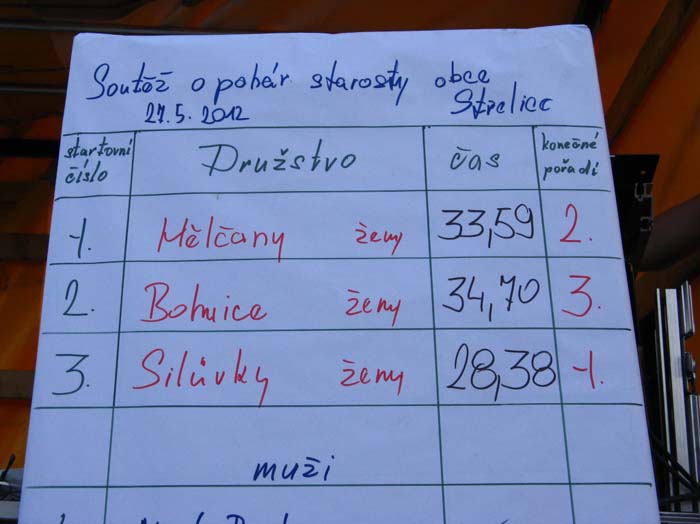 Soutěž o pohár starosty obce
27.5.2012 Střelice
startovní číslo Družstvo čas konečné pořadí
1. Mělčany ženy 33,59 2.
2. Bohnice ženy 34,70 3.
3. Silůvky ženy 28,38 1.
muži